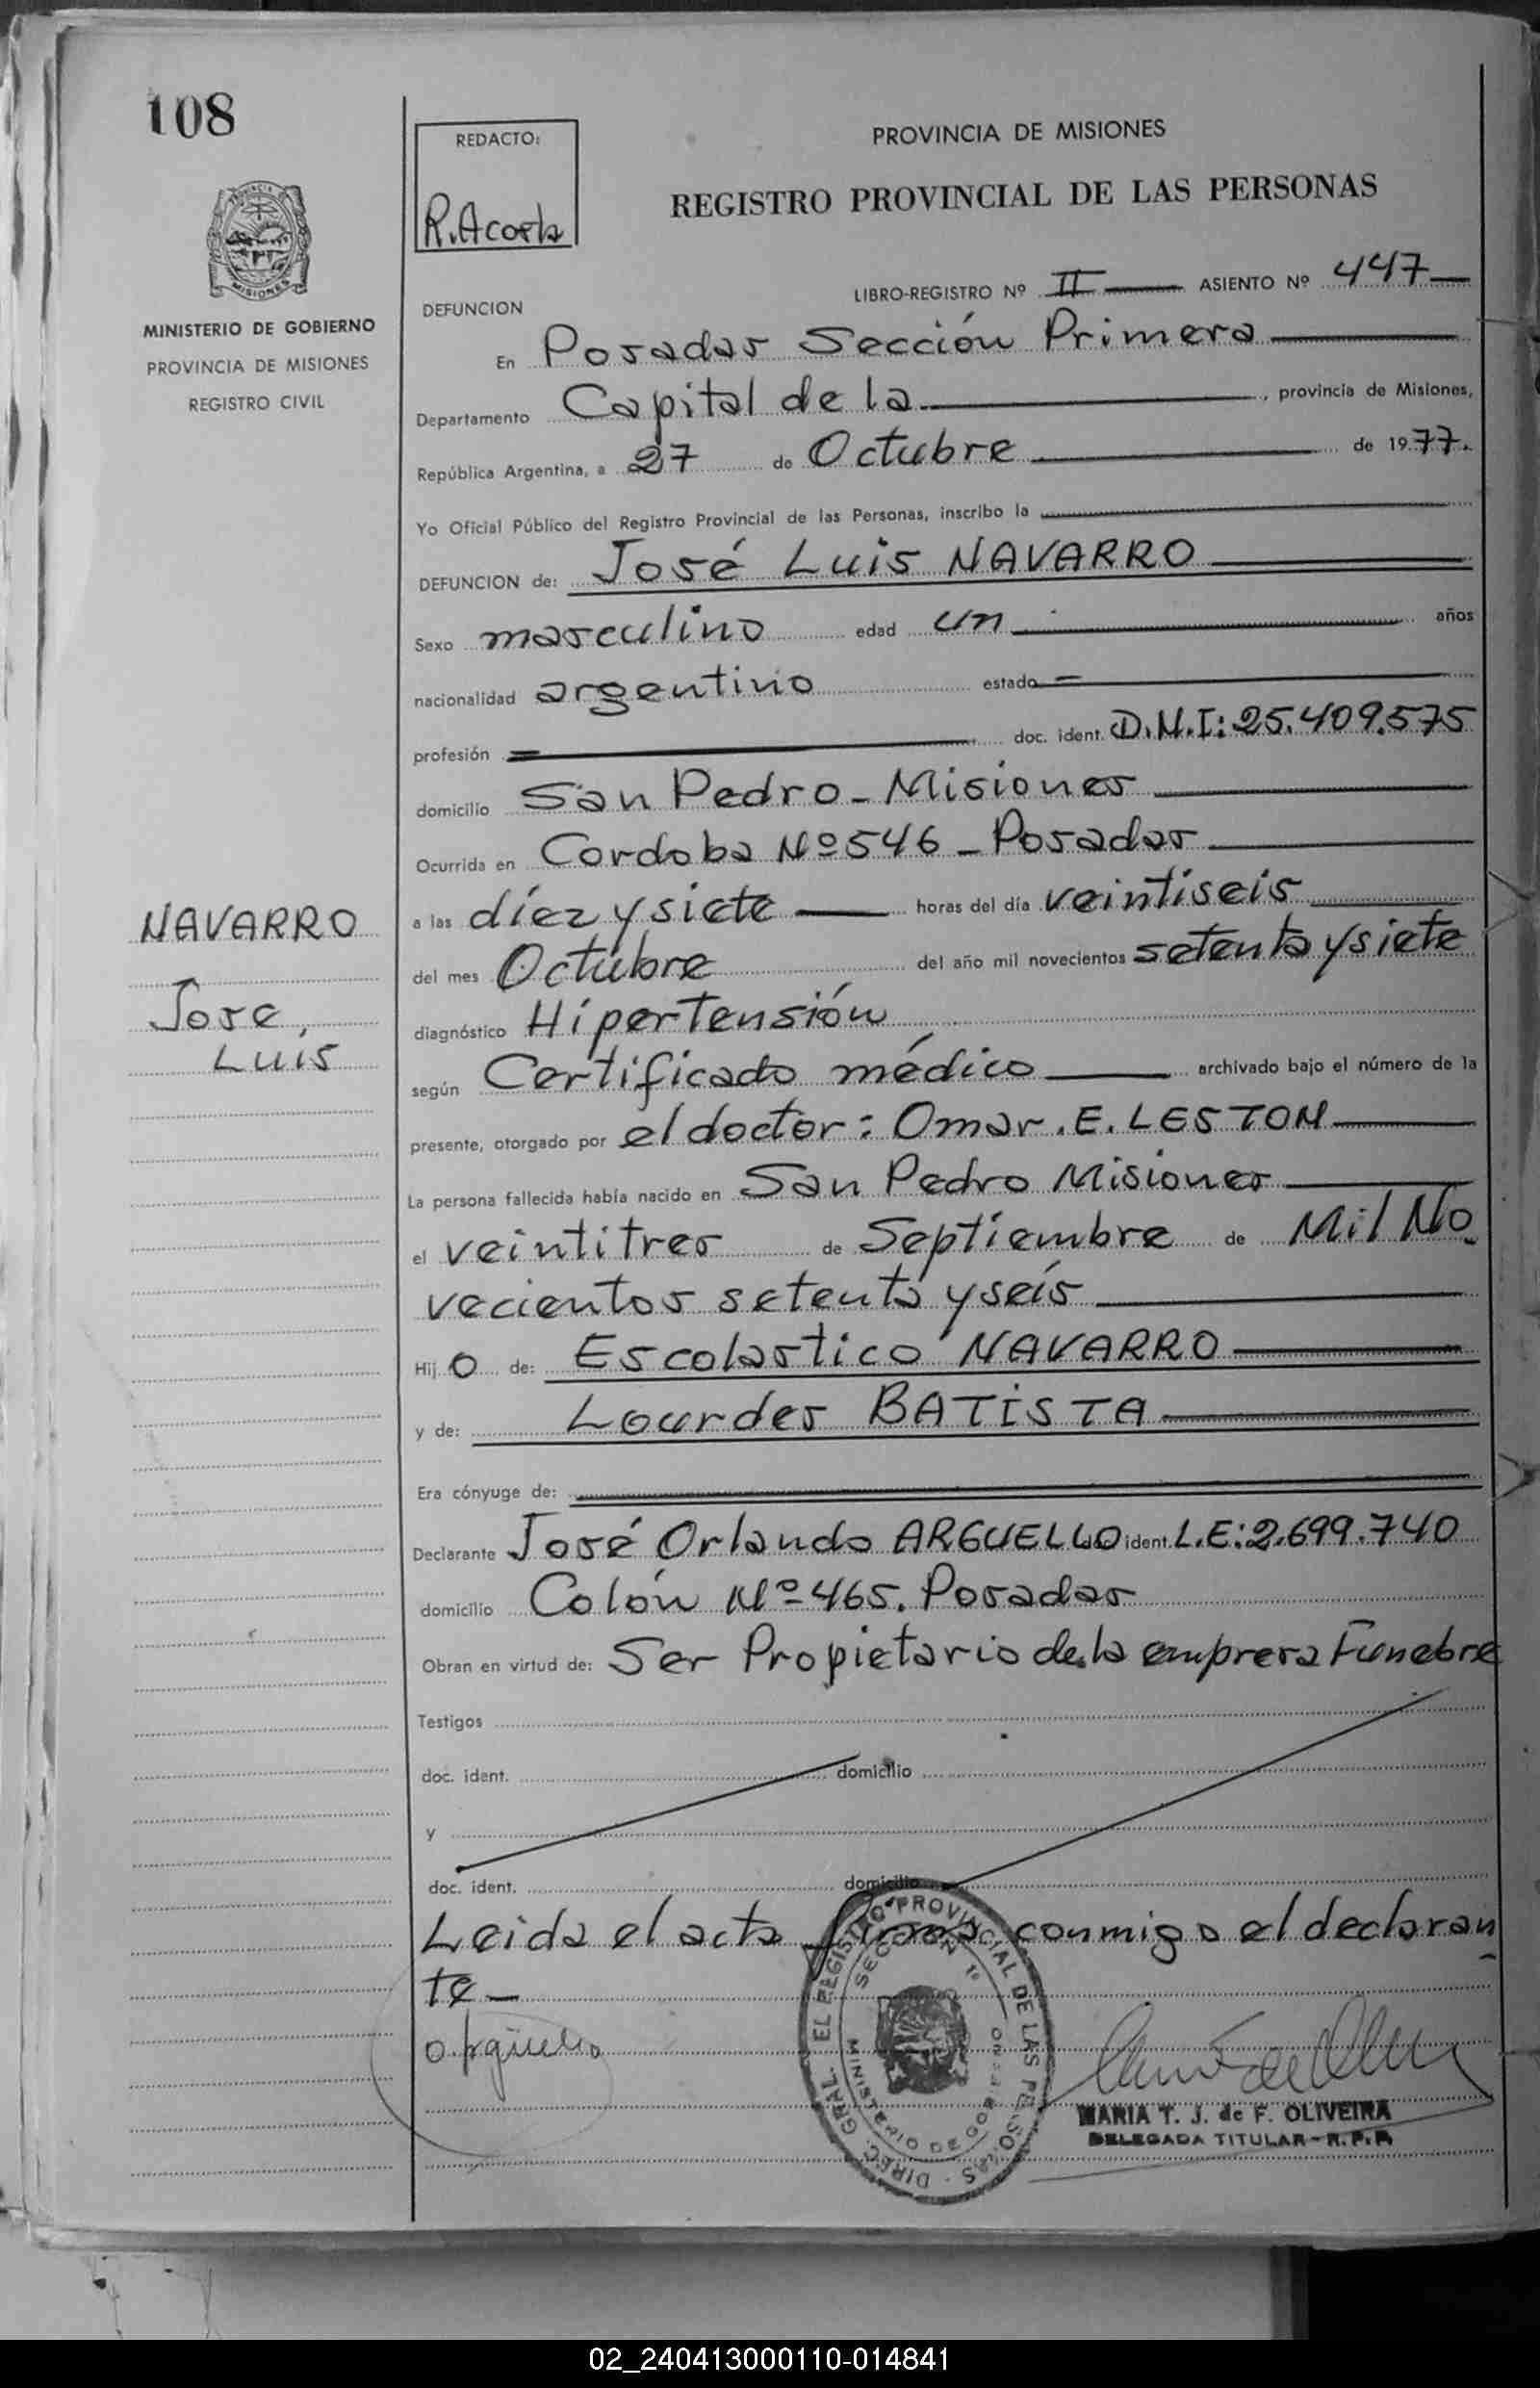 108
REDACTO:
R. Acosta
PROVINCIA DE MISIONES
REGISTRO PROVINCIAL DE LAS PERSONAS
PROVINCIA
MISIONES
MINISTERIO DE GOBIERNO
PROVINCIA DE MISIONES
REGISTRO CIVIL
LIBRO-REGISTRO Nº II ASIENTO Nº 447
DEFUNCION
En Posadas Sección Primera
Departamento Capital de la, provincia de Misiones,
República Argentina, a 27 de Octubre de 1977.
Yo Oficial Público del Registro Provincial de las Personas, inscribo la
DEFUNCION de: José Luis NAVARRO
Sexo masculino edad un años
nacionalidad argentino estado =
profesión = doc. ident. D.N.I: 25.409.575
domicilio San Pedro - Misiones
Ocurrida en Cordoba Nº 546 - Posadas
NAVARRO
Jose,
Luis
a las díez y siete horas del día veintiseis
del mes Octubre del año mil novecientos setenta y siete
diagnóstico Hipertensión
según Certificado médico archivado bajo el número de la
presente, otorgado por el doctor: Omar. E. LESTON
La persona fallecida había nacido en San Pedro Misiones
el veintitres de Septiembre de Mil No
vecientos setenta y seis
Hijo de: Escolastico NAVARRO
y de: Lourdes BATISTA
Era cónyuge de:
Declarante José Orlando ARGUELLO ident. L.E: 2.699.740
domicilio Colón Nº 465. Posadas
Obran en virtud de: Ser Propietario de la empresa Funebre
Testigos
doc. ident. domicilio
y
doc. ident. domicilio
Leida el acta firma conmigo el declaran
te -
O. Arguello
DIREC. GRAL. EL REGISTRO PROVINCIAL DE LAS PERSONAS
SECCION 1ª
MINISTERIO DE GOBIERNO
MARIA T. J. de F. OLIVEIRA
DELEGADA TITULAR - R.P.P.
02_240413000110-014841